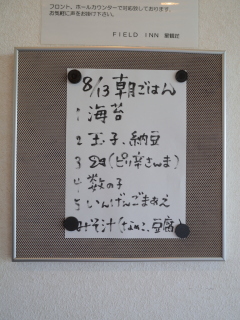 フロント、ホールカウンターで対応致しております。
お気軽に声をお掛け下さい。
FIELD INN
8/13 朝ごはん
1 海苔
2 玉子、納豆
3 (ピリ辛さんま)
4 数の子
5 いんげんごまあえ
みそ汁(なめこ、豆腐)